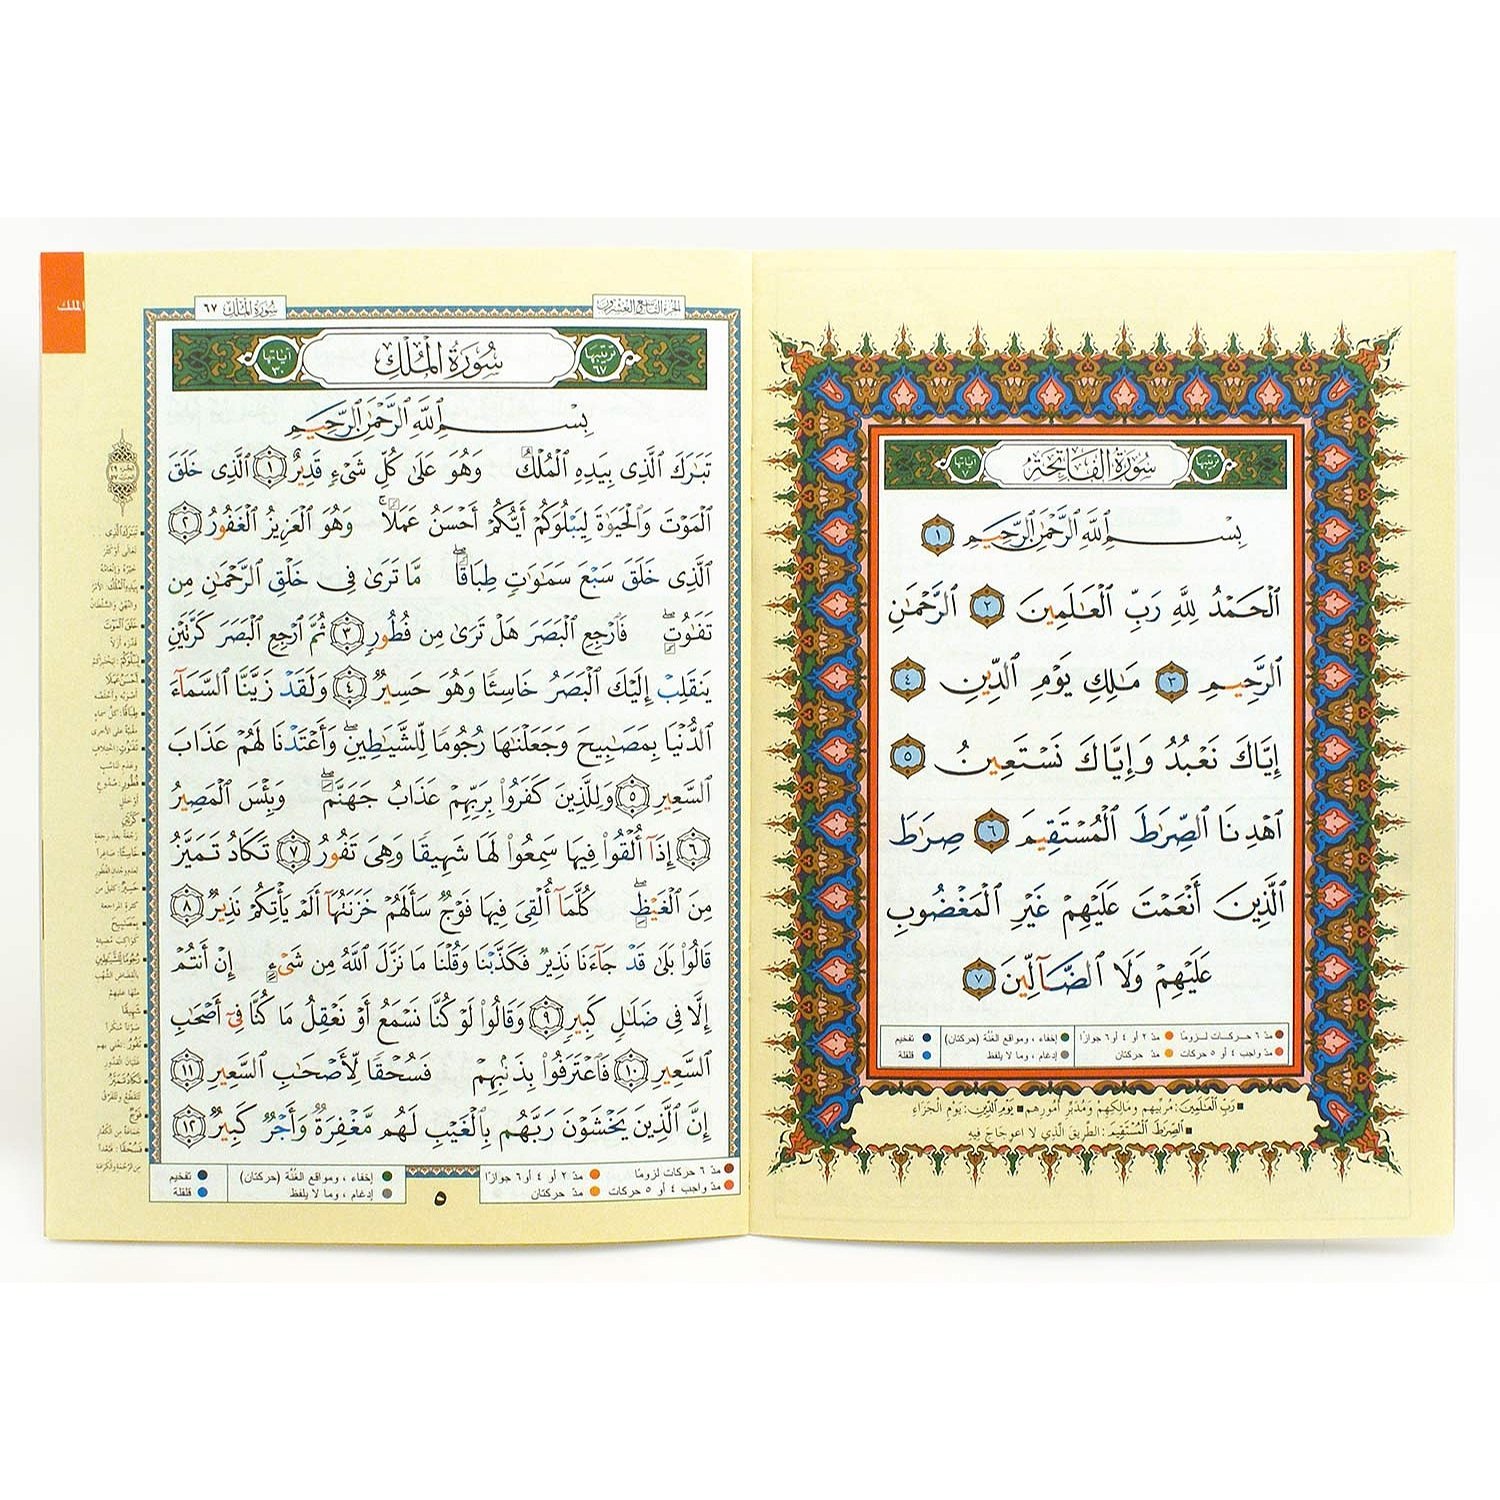 سُورَةُ الفَاتِحَةِ
ترتيبها ١
آياتها ٧
بِسْمِ ٱللَّهِ ٱلرَّحْمَٰنِ ٱلرَّحِيمِ ١
ٱلْحَمْدُ لِلَّهِ رَبِّ ٱلْعَٰلَمِينَ ٢ ٱلرَّحْمَٰنِ
ٱلرَّحِيمِ ٣ مَٰلِكِ يَوْمِ ٱلدِّينِ ٤
إِيَّاكَ نَعْبُدُ وَإِيَّاكَ نَسْتَعِينُ ٥
ٱهْدِنَا ٱلصِّرَٰطَ ٱلْمُسْتَقِيمَ ٦ صِرَٰطَ
ٱلَّذِينَ أَنْعَمْتَ عَلَيْهِمْ غَيْرِ ٱلْمَغْضُوبِ
عَلَيْهِمْ وَلَا ٱلضَّآلِّينَ ٧
مدّ ٦ حركات لزومًا مدّ ٢ أو ٤ أو ٦ جوازًا إخفاء ، ومواقع الغُنَّة (حركتان) تفخيم
مدّ واجب ٤ أو ٥ حركات مدّ حركتان إدغام ، وما لا يلفظ قلقلة
رَبِّ الْعَالَمِينَ: مُرَبِّيهِم وَمَالِكِهِم وَمُدَبِّرِ أُمُورِهِم يَوْمِ الدِّينِ: يَوْمِ الْجَزَاءِ
الصِّرَاطَ الْمُسْتَقِيمَ: الطَّرِيقَ الَّذِي لَا اعْوِجَاجَ فِيهِ
الجزء التاسع والعشرون
سُورَةُ المُلْك ٦٧
الملك
سُورَةُ المُلْكِ
ترتيبها ٦٧
آياتها ٣٠
بِسْمِ ٱللَّهِ ٱلرَّحْمَٰنِ ٱلرَّحِيمِ
تَبَٰرَكَ ٱلَّذِى بِيَدِهِ ٱلْمُلْكُ وَهُوَ عَلَىٰ كُلِّ شَىْءٍ قَدِيرٌ ١ ٱلَّذِى خَلَقَ
ٱلْمَوْتَ وَٱلْحَيَوٰةَ لِيَبْلُوَكُمْ أَيُّكُمْ أَحْسَنُ عَمَلًا ۚ وَهُوَ ٱلْعَزِيزُ ٱلْغَفُورُ ٢
ٱلَّذِى خَلَقَ سَبْعَ سَمَٰوَٰتٍ طِبَاقًا ۖ مَّا تَرَىٰ فِى خَلْقِ ٱلرَّحْمَٰنِ مِن
تَفَٰوُتٍ ۖ فَٱرْجِعِ ٱلْبَصَرَ هَلْ تَرَىٰ مِن فُطُورٍ ٣ ثُمَّ ٱرْجِعِ ٱلْبَصَرَ كَرَّتَيْنِ
يَنقَلِبْ إِلَيْكَ ٱلْبَصَرُ خَاسِئًا وَهُوَ حَسِيرٌ ٤ وَلَقَدْ زَيَّنَّا ٱلسَّمَآءَ
ٱلدُّنْيَا بِمَصَٰبِيحَ وَجَعَلْنَٰهَا رُجُومًا لِّلشَّيَٰطِينِ ۖ وَأَعْتَدْنَا لَهُمْ عَذَابَ
ٱلسَّعِيرِ ٥ وَلِلَّذِينَ كَفَرُوا۟ بِرَبِّهِمْ عَذَابُ جَهَنَّمَ ۖ وَبِئْسَ ٱلْمَصِيرُ
٦ إِذَآ أُلْقُوا۟ فِيهَا سَمِعُوا۟ لَهَا شَهِيقًا وَهِىَ تَفُورُ ٧ تَكَادُ تَمَيَّزُ
مِنَ ٱلْغَيْظِ ۖ كُلَّمَآ أُلْقِىَ فِيهَا فَوْجٌ سَأَلَهُمْ خَزَنَتُهَآ أَلَمْ يَأْتِكُمْ نَذِيرٌ ٨
قَالُوا۟ بَلَىٰ قَدْ جَآءَنَا نَذِيرٌ فَكَذَّبْنَا وَقُلْنَا مَا نَزَّلَ ٱللَّهُ مِن شَىْءٍ إِنْ أَنتُمْ
إِلَّا فِى ضَلَٰلٍ كَبِيرٍ ٩ وَقَالُوا۟ لَوْ كُنَّا نَسْمَعُ أَوْ نَعْقِلُ مَا كُنَّا فِىٓ أَصْحَٰبِ
ٱلسَّعِيرِ ١٠ فَٱعْتَرَفُوا۟ بِذَنۢبِهِمْ فَسُحْقًا لِّأَصْحَٰبِ ٱلسَّعِيرِ ١١
إِنَّ ٱلَّذِينَ يَخْشَوْنَ رَبَّهُم بِٱلْغَيْبِ لَهُم مَّغْفِرَةٌ وَأَجْرٌ كَبِيرٌ ١٢
مدّ ٦ حركات لزومًا مدّ ٢ أو ٤ أو ٦ جوازًا إخفاء ، ومواقع الغُنَّة (حركتان) تفخيم
مدّ واجب ٤ أو ٥ حركات مدّ حركتان إدغام ، وما لا يلفظ قلقلة
٥